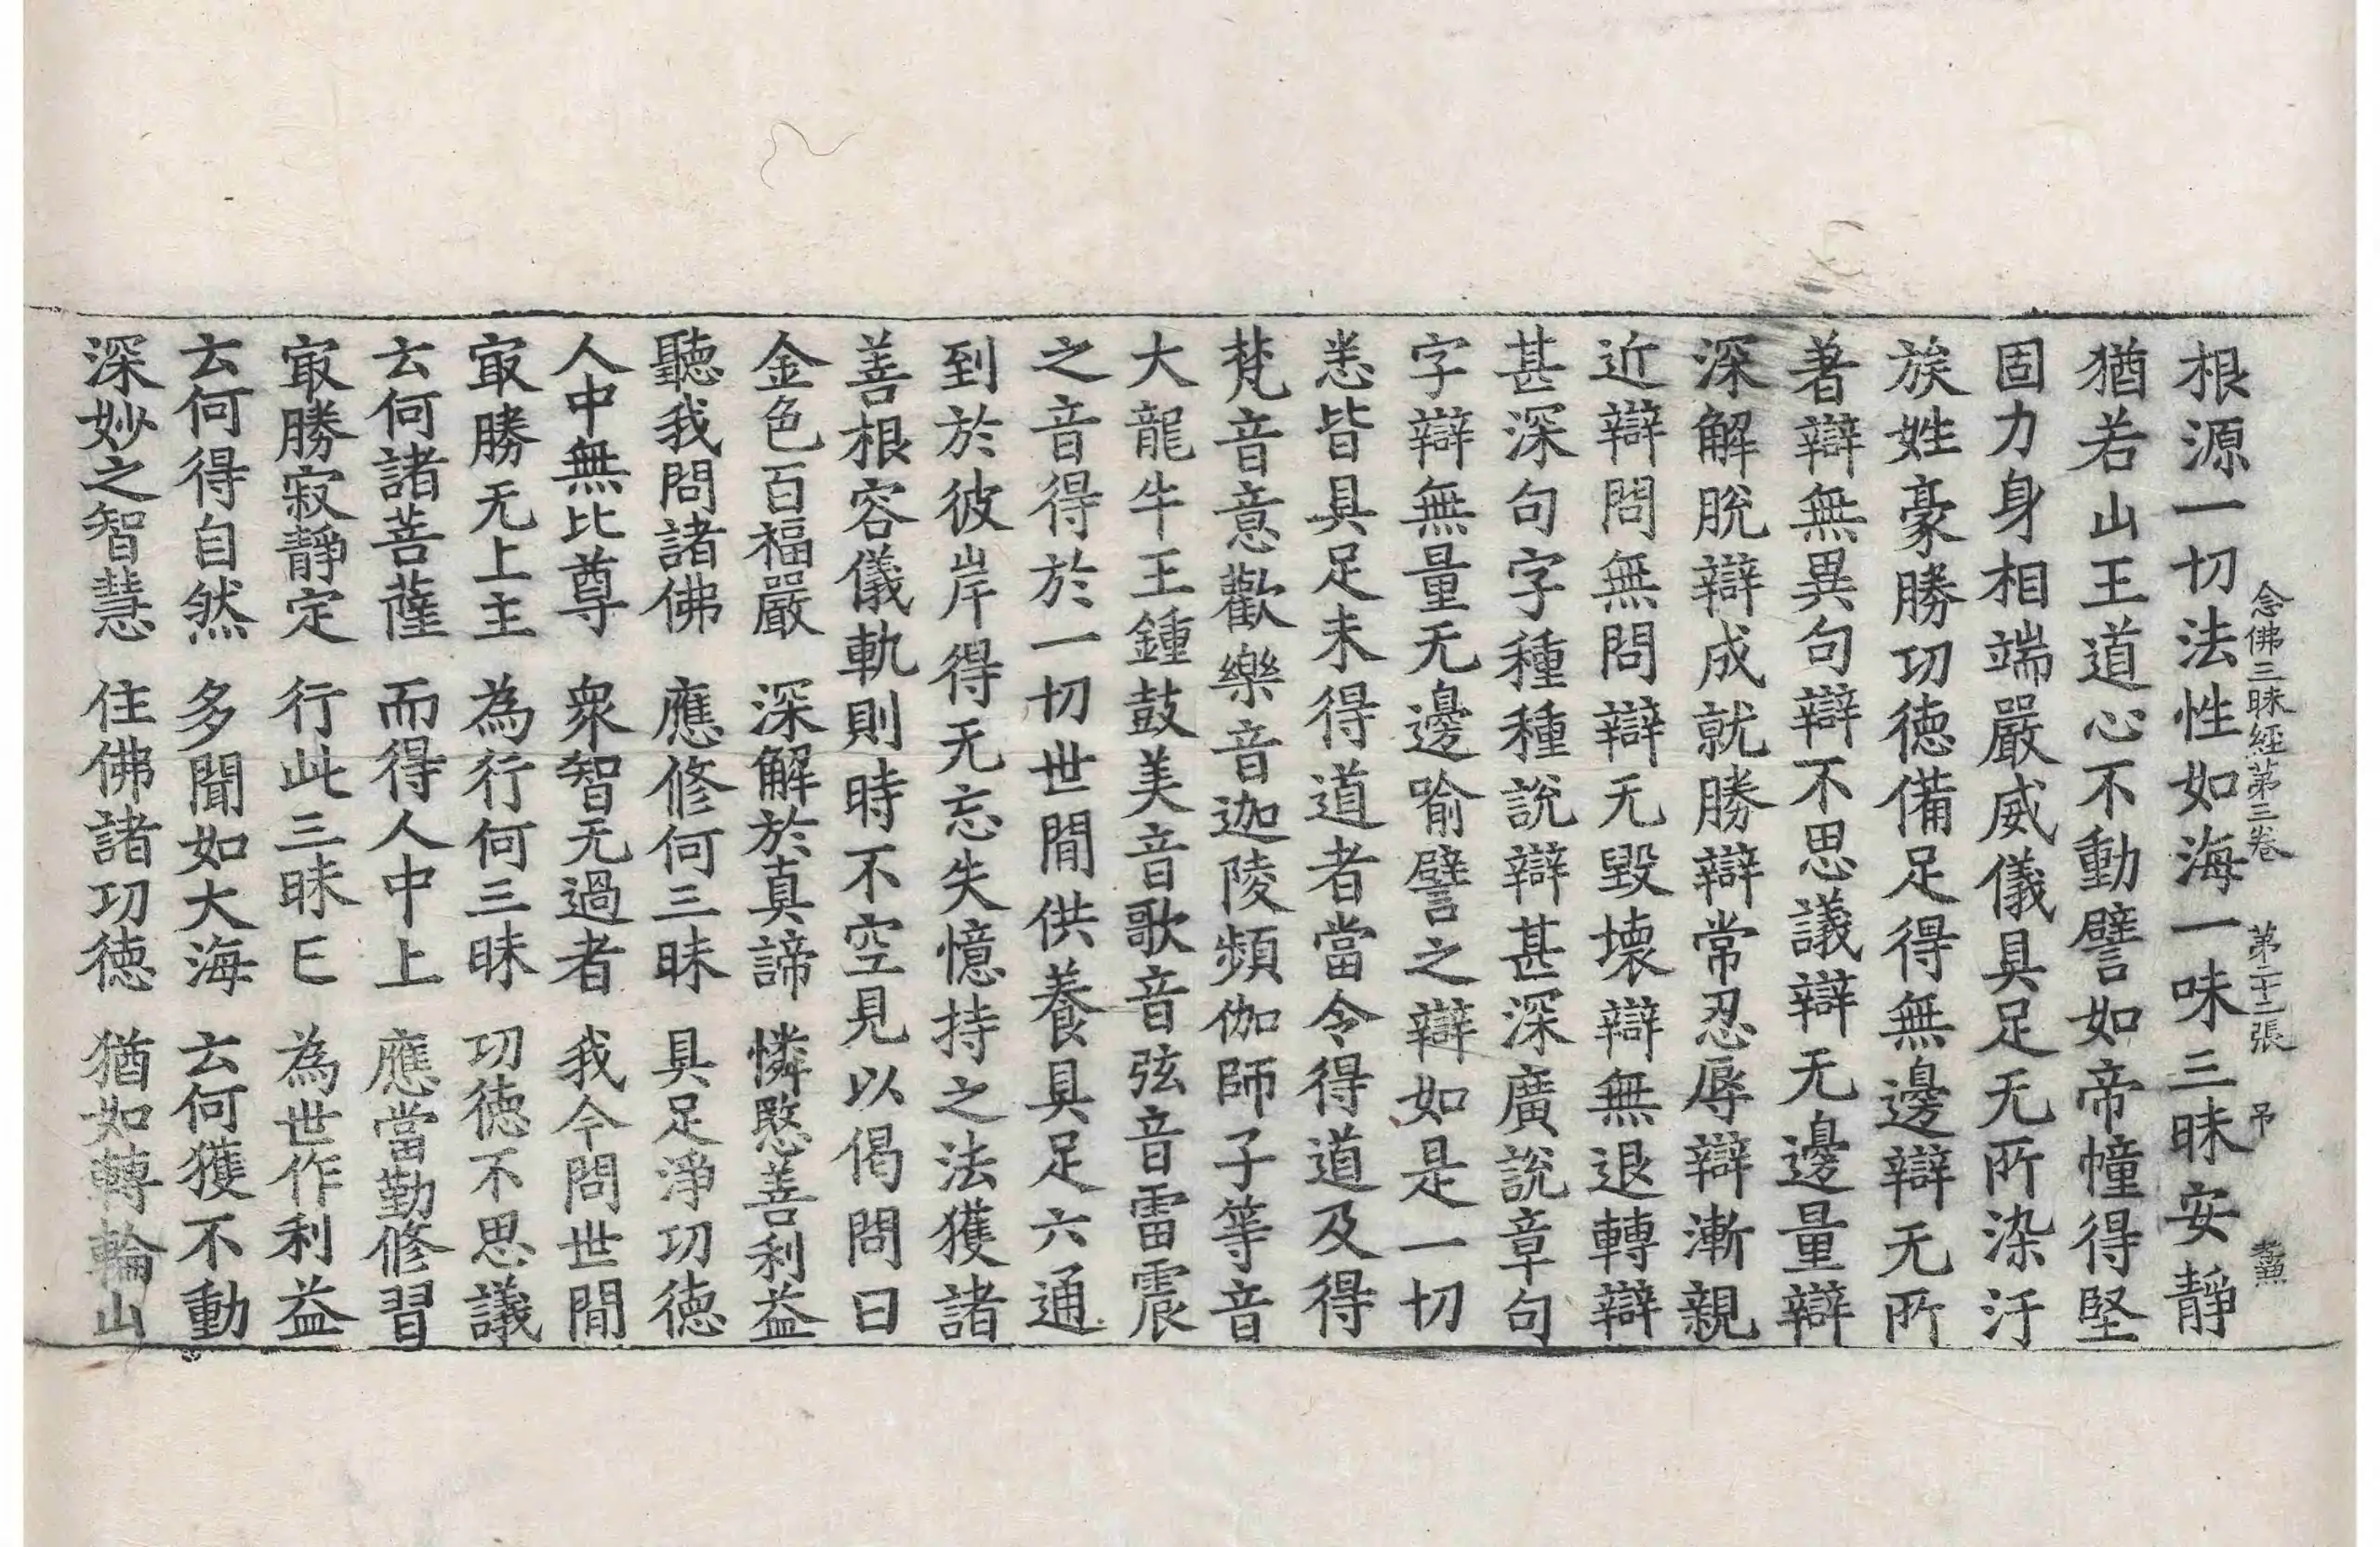 念佛三昧經第三卷 第二十二張 吊
根源一切法性如海一味三昧安靜
猶若山王道心不動譬如帝幢得堅
固力身相端嚴威儀具足无所染汙
族姓豪勝功德備足得無邊辯无所
著辯無異句辯不思議辯无邊量辯
深解脫辯成就勝辯常忍辱辯漸親
近辯問無問辯无毀壞辯無退轉辯
甚深句字種種說辯甚深廣說章句
字辯無量无邊喻譬之辯如是一切
悉皆具足未得道者當令得道及得
梵音意歡樂音迦陵頻伽師子等音
大龍牛王鍾鼓美音歌音弦音雷震
之音得於一切世間供養具足六通
到於彼岸得无忘失憶持之法獲諸
善根容儀軌則時不空見以偈問曰
金色百福嚴 深解於真諦 憐愍善利益
聽我問諸佛 應修何三昧 具足淨功德
人中無比尊 衆智无過者 我今問世間
㝡勝无上主 為行何三昧 功德不思議
云何諸菩薩 而得人中上 應當勤修習
㝡勝寂靜定 行此三昧已 為世作利益
云何得自然 多聞如大海 云何獲不動
深妙之智慧 住佛諸功德 猶如轉輪山